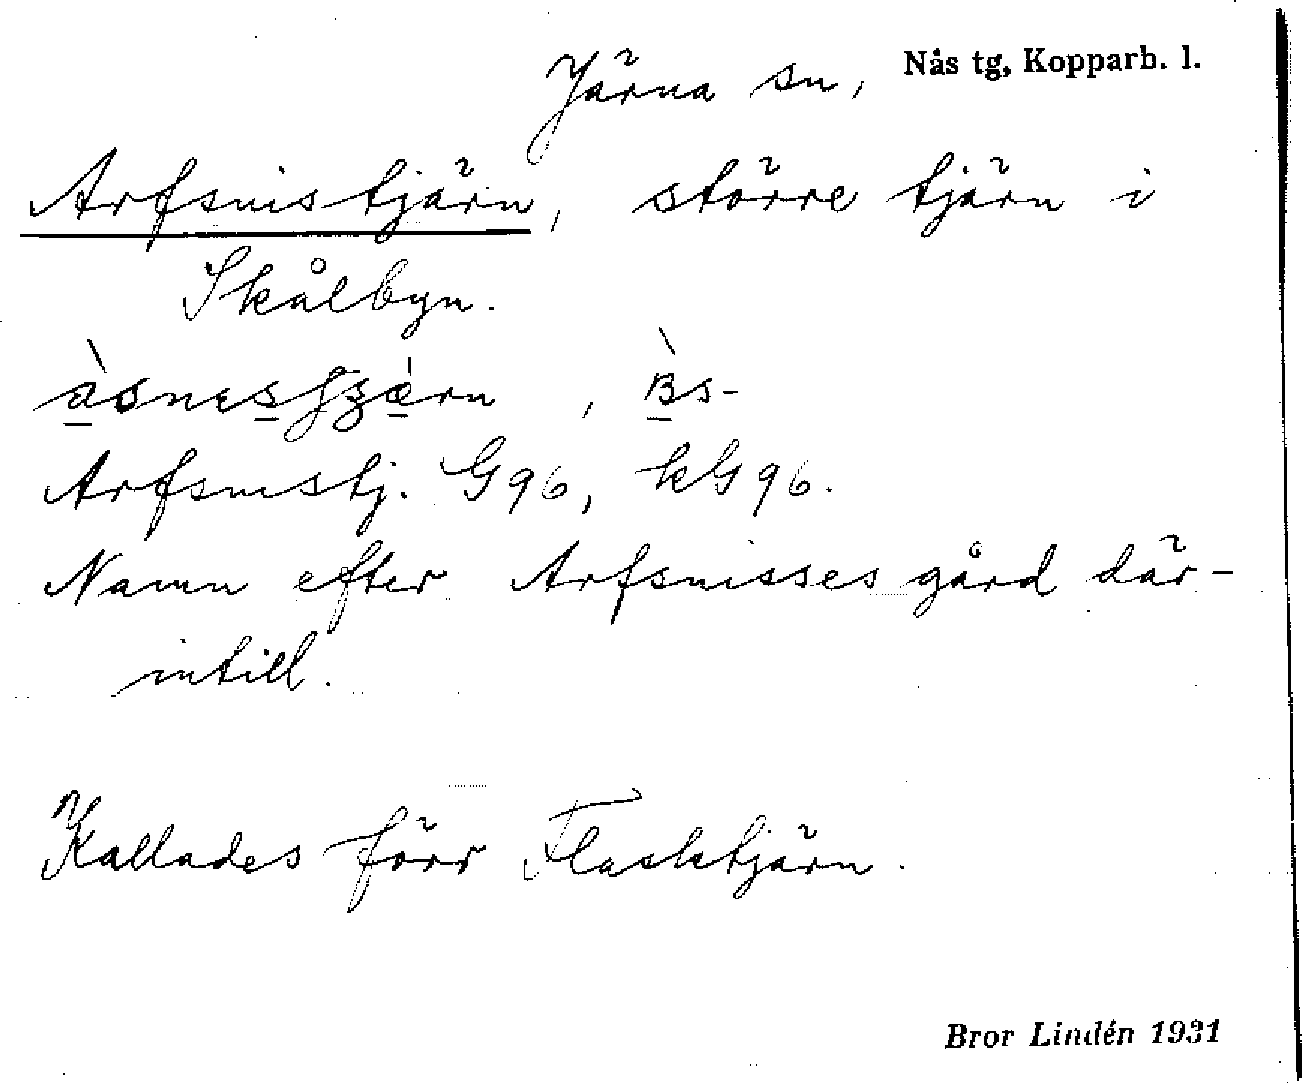 Järna sn, Nås tg, Kopparb. l.
Arfsnistjärn, större tjärn i
Skålbyn.
Arfsnistj. G96, kG96.
Namn efter Arfsnisses gård där-
intill.
Kallades förr Flasktjärn.
Bror Lindén 1931